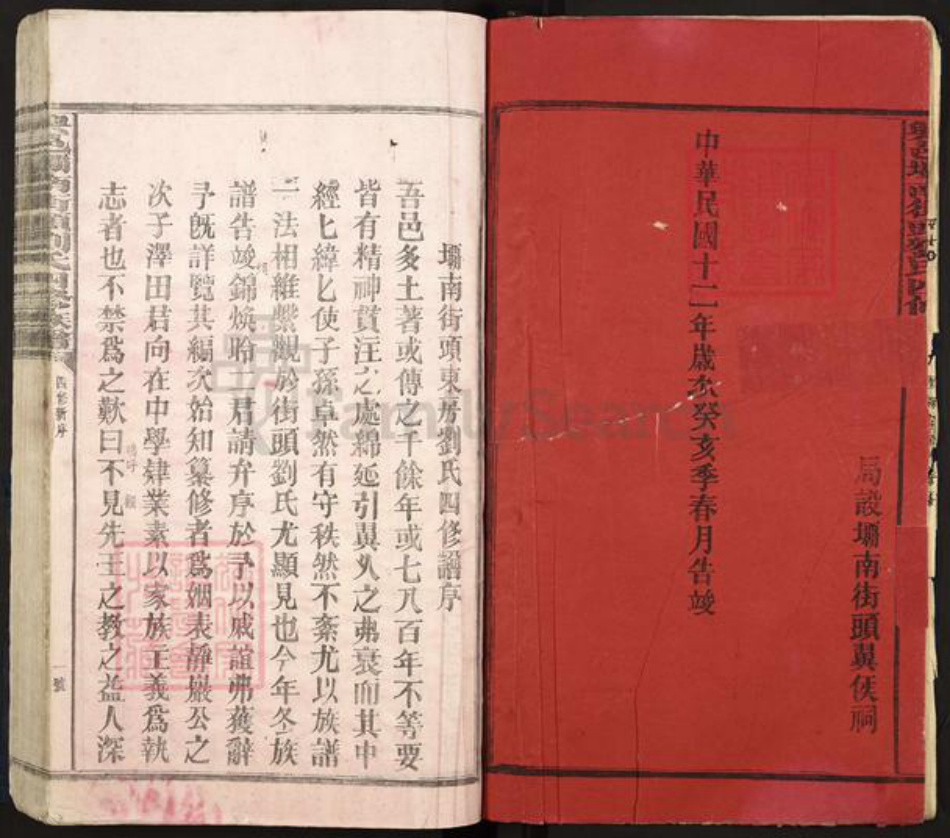 局設壩南街頭翼侯祠
中華民國十二年歲次癸亥季春月告竣
壩南街頭東房劉氏四修譜序
吾邑多土著或傳之千餘年或七八百年不等要
皆有精神貫注之處綿延引翼久之弗衰而其中
經匕緯匕使子孫卓然有守秩然不紊尤以族譜
一法相維繫觀於街頭劉氏尤顯見也今年冬族
譜告竣錦煥聆一君請弁序於予以戚誼弗獲辭
予旣詳覽其編次始知纂修者爲姻表靜巖公之
次子澤田君向在中學肄業素以家族主義爲執
志者也不禁爲之歎曰不見先王之教之益人深
四修新序
一號
FamilySearch